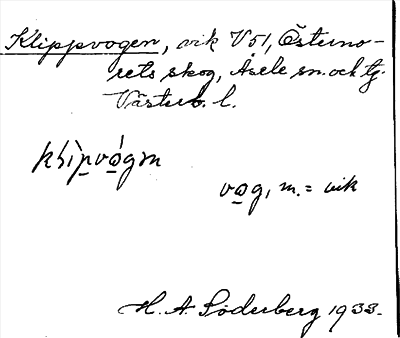 Klippvogen, vik V51, Österno-
rets skog, Åsele sn. och tg.
Västerb. l.
klìpvó̱gɱ
vo̱g, m. = vik
H. A. Söderberg 1933.